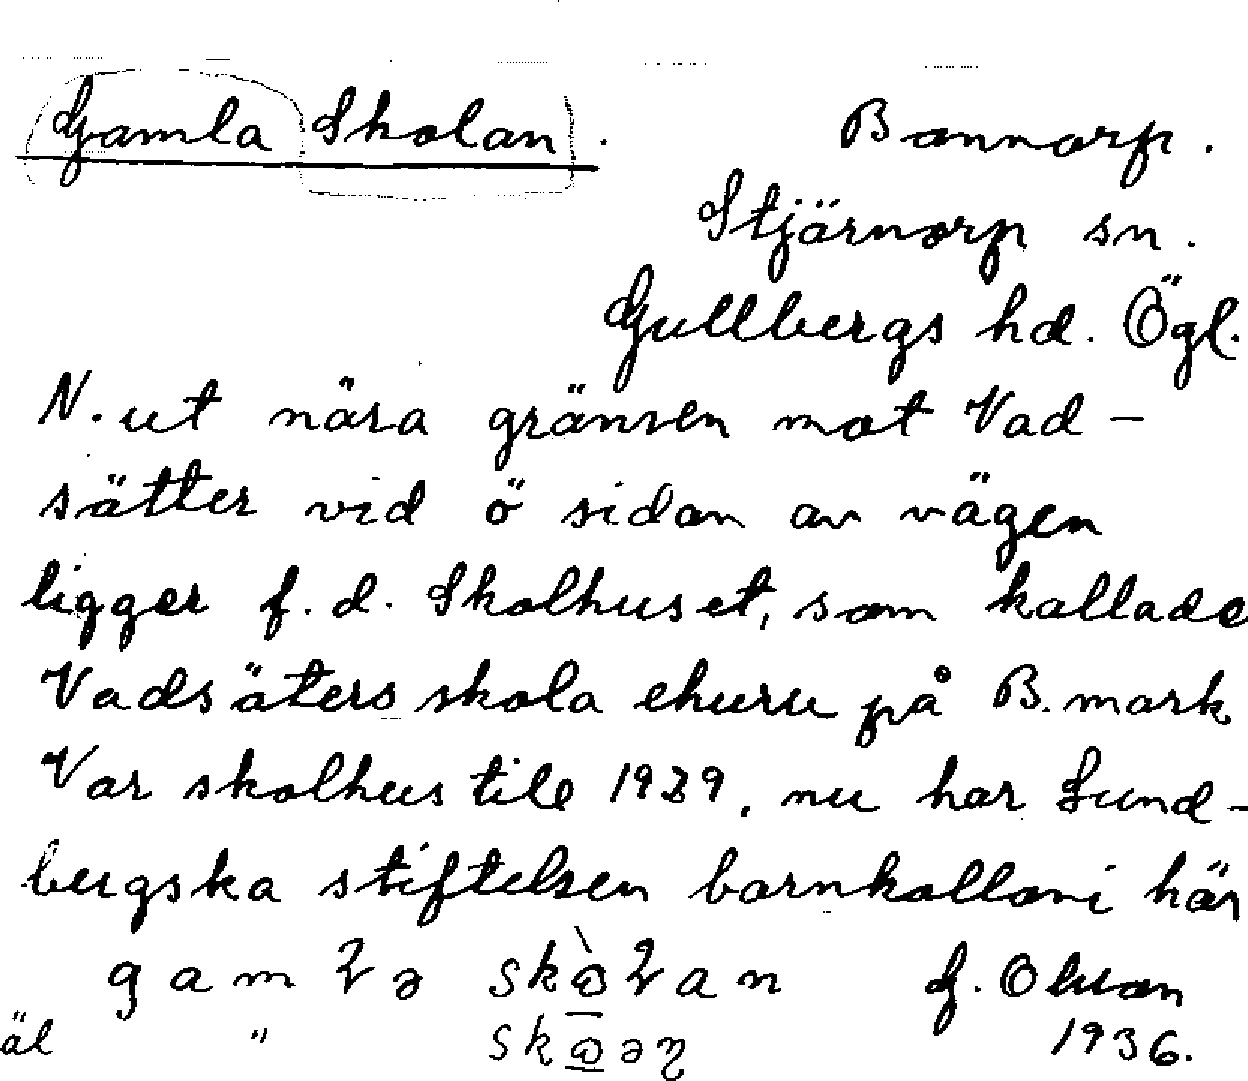 Gamla Skolan. Bannorp.
Stjärnorp sn.
Gullbergs hd. Ögl.
N. ut nära gränsen mot Vad-
sätter vid ö sidan av vägen
ligger f. d. Skolhuset, som kallade
Vadsäters skola ehuru på B. mark
Var skolhus till 1929, nu har Lund-
bergska stiftelsen barnkolloni här
J. Olson
äl "
1936.